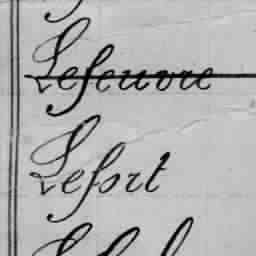 Lefeuvre
Lefort